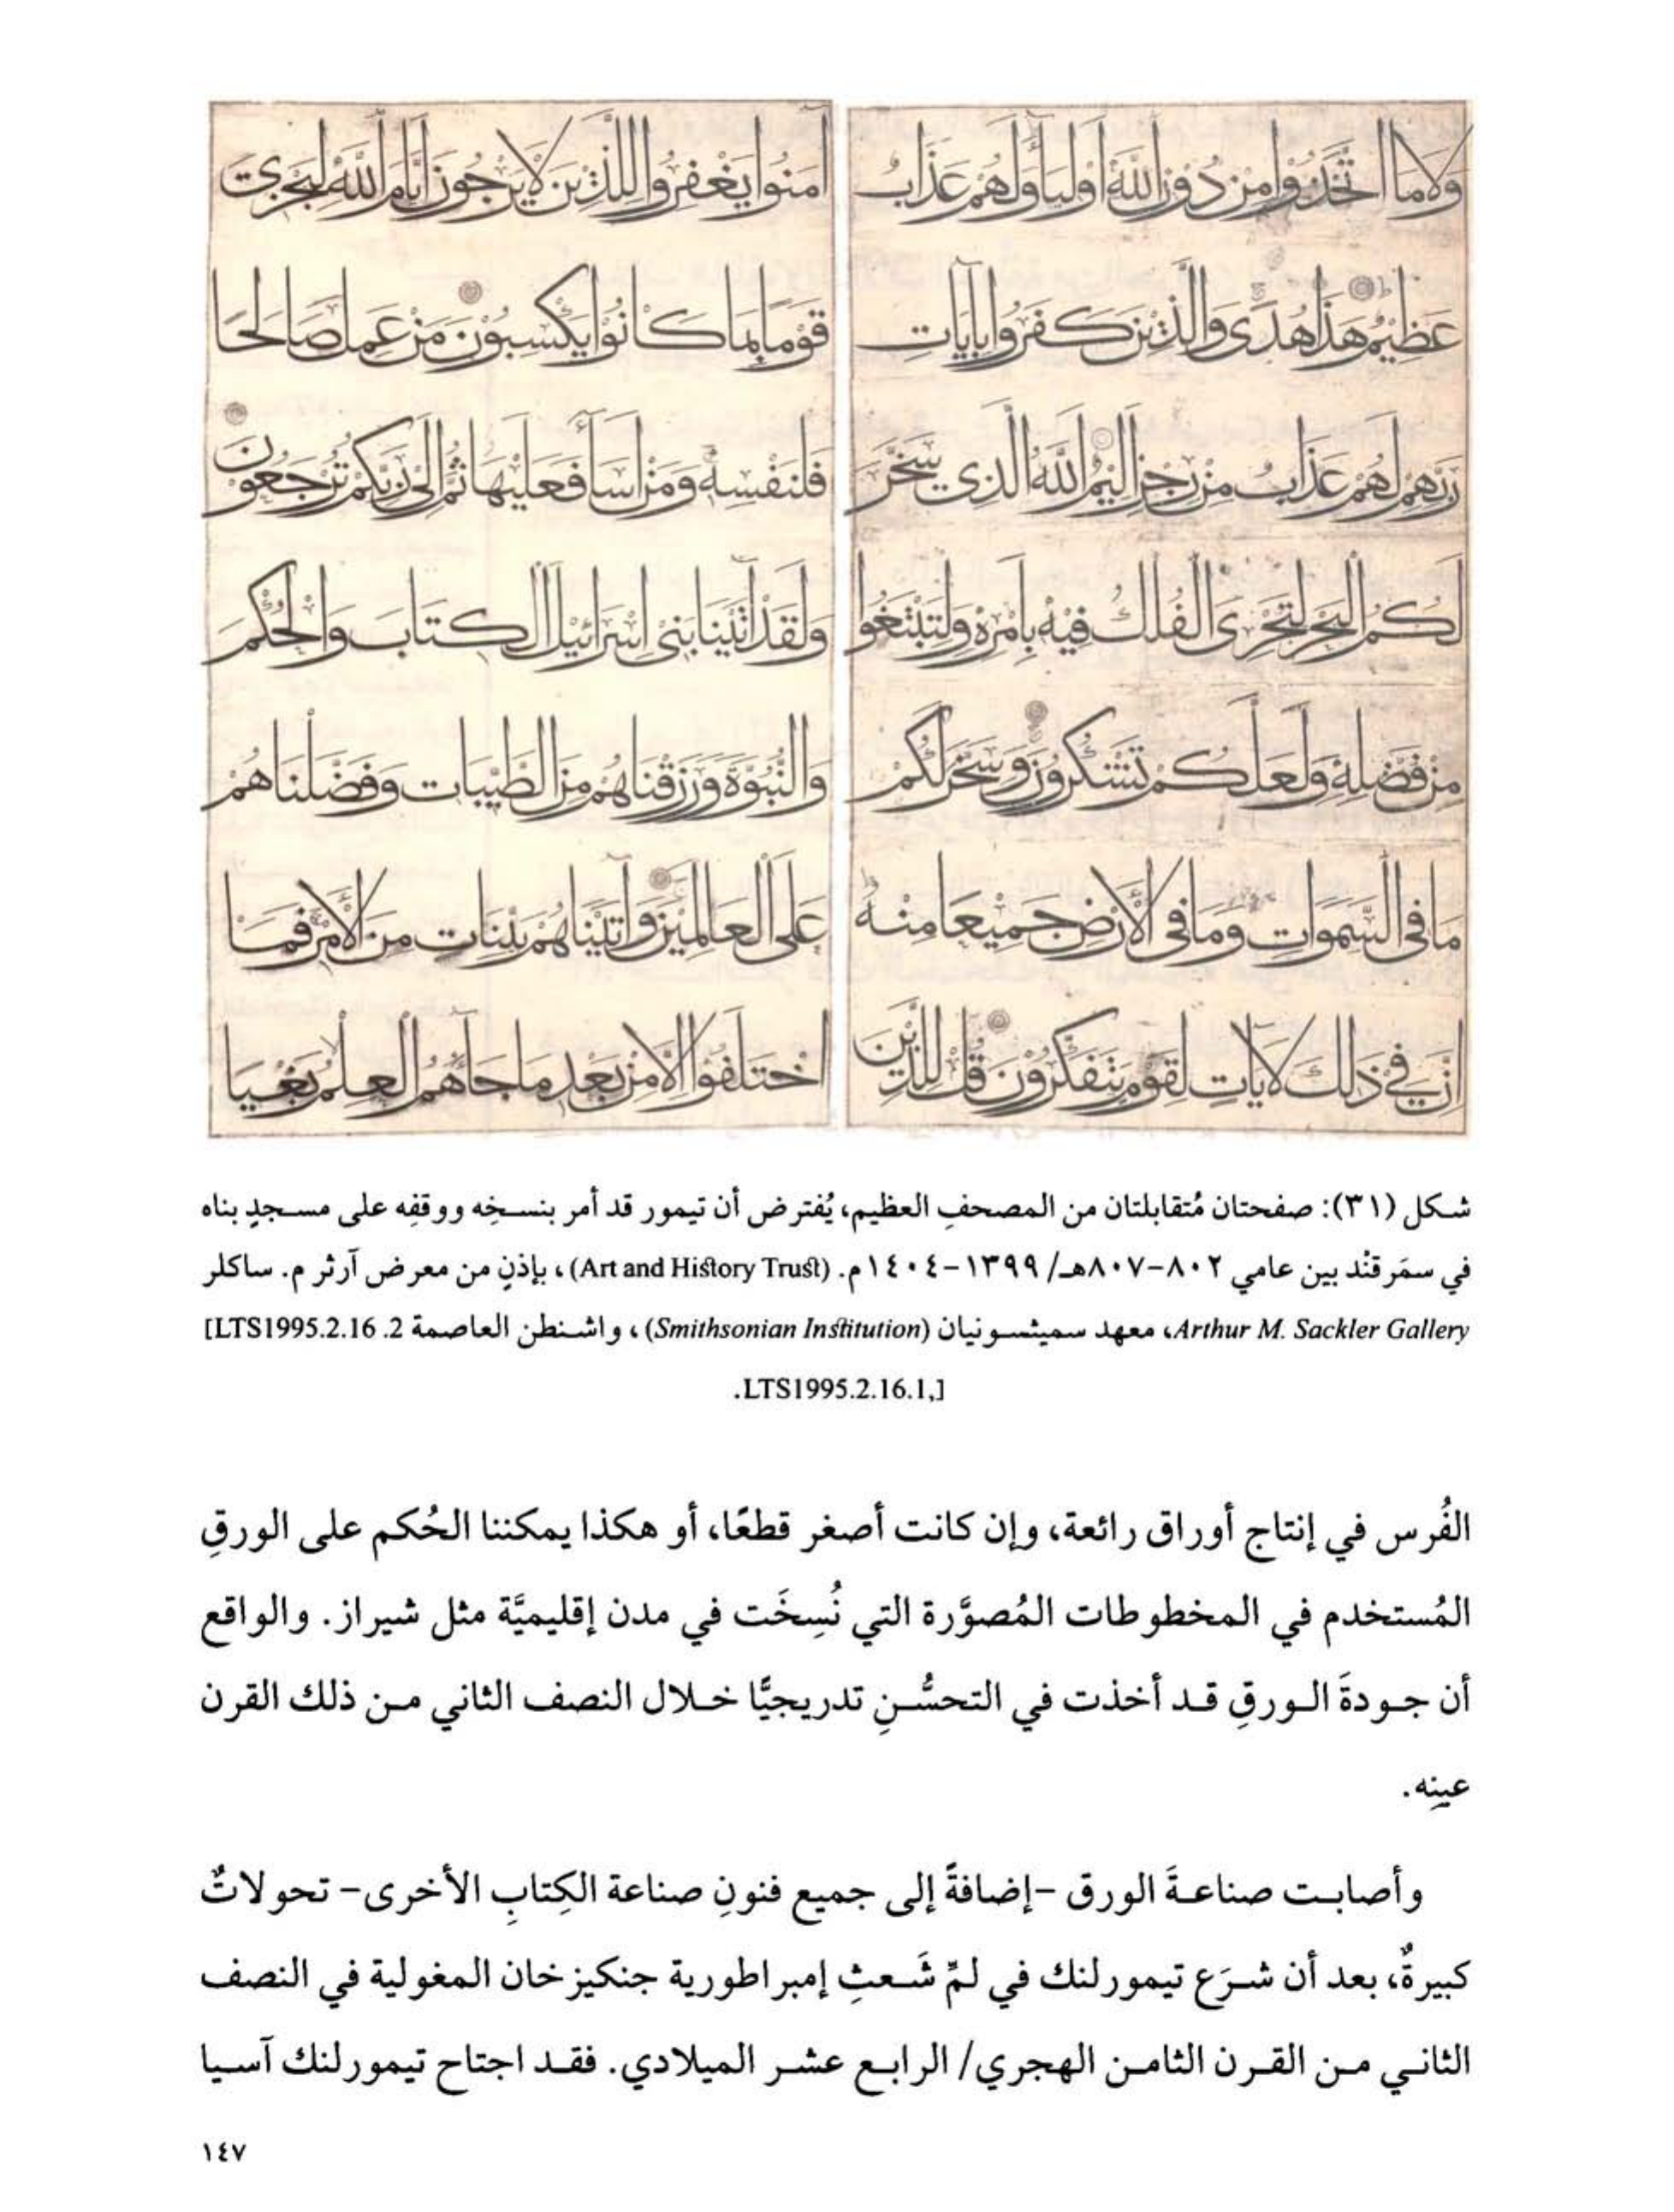 ولا ما اتخذوا من دون الله اوليا ولهم عذاب
عظيم هذا هدى والذين كفروا بايات
ربهم لهم عذاب من رجز اليم الله الذى سخر
لكم البحر لتجرى الفلك فيه بامره ولتبتغوا
من فضله ولعلكم تشكرون وسخر لكم
ما فى السموات وما فى الارض جميعا منه
ان فى ذلك لايات لقوم يتفكرون قل للذين
امنوا يغفروا للذين لا يرجون ايام الله ليجزى
قوما بما كانوا يكسبون من عمل صالحا
فلنفسه ومن اسا فعليها ثم الى ربكم ترجعون
ولقد اتينا بنى اسرائيل الكتاب والحكم
والنبوة ورزقناهم من الطيبات وفضلناهم
على العالمين واتيناهم بينات من الامر فما
اختلفوا الا من بعد ما جاهم العلم بغيا
شكل (٣١): صفحتان مُتقابلتان من المصحفِ العظيم، يُفترض أن تيمور قد أمر بنسخِه ووقفِه على مسجدٍ بناه
في سمَرقنْد بين عامي ٨٠٢-٨٠٧هـ/ ١٣٩٩-١٤٠٤م. (Art and History Trust)، بإذنٍ من معرض آرثر م. ساكلر
Arthur M. Sackler Gallery، معهد سميثسونيان (Smithsonian Institution)، واشنطن العاصمة 2. LTS1995.2.16]
[,LTS1995.2.16.1.
الفُرس في إنتاج أوراق رائعة، وإن كانت أصغر قطعًا، أو هكذا يمكننا الحُكم على الورقِ
المُستخدم في المخطوطات المُصوَّرة التي نُسِخَت في مدن إقليميَّة مثل شيراز. والواقع
أن جودةَ الورقِ قد أخذت في التحسُّنِ تدريجيًّا خلال النصف الثاني من ذلك القرن
عينِه.
وأصابت صناعةَ الورق -إضافةً إلى جميع فنونِ صناعة الكِتابِ الأخرى- تحولاتٌ
كبيرةٌ، بعد أن شرَع تيمورلنك في لمِّ شَعثِ إمبراطورية جنكيزخان المغولية في النصف
الثاني من القرن الثامن الهجري/ الرابع عشر الميلادي. فقد اجتاح تيمورلنك آسيا
١٤٧